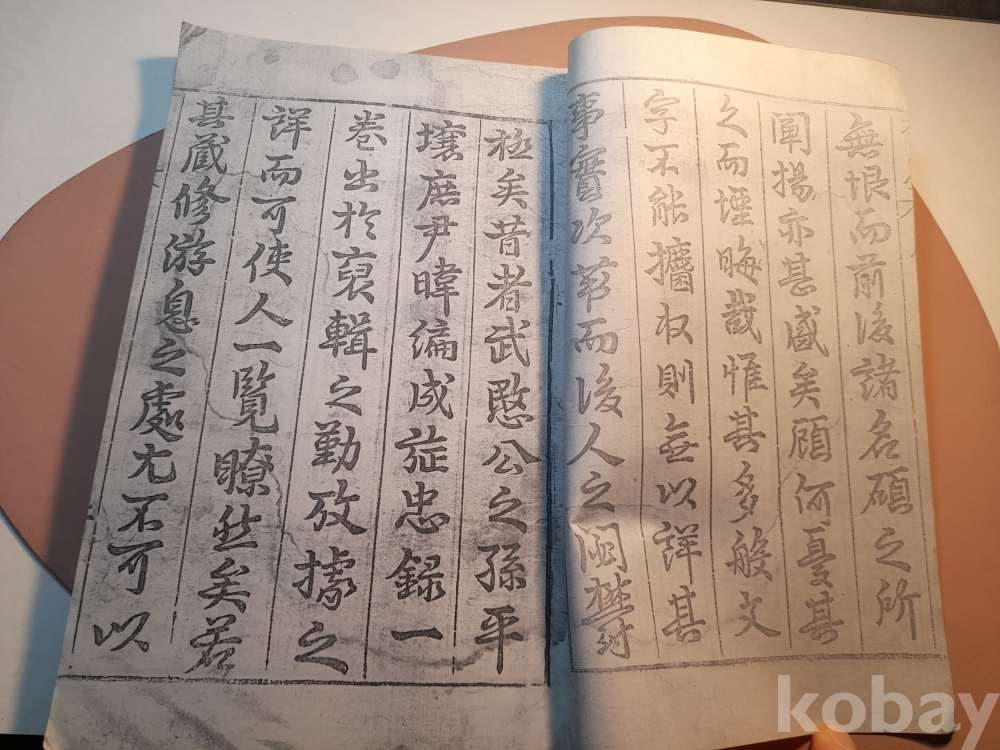 無恨而前後諸名碩之所
闡揚亦甚盛矣顧何憂其
久而堙晦哉惟其多般文
字不能攟收則無以詳其
事實次第而後人之闕
極矣昔者武愍公之孫平
壤庶尹暐編成旌忠録一
卷出於裒輯之勤攷據之
詳而可使人一覧瞭然矣若
其蔵修游息之處尤不可以
kobay